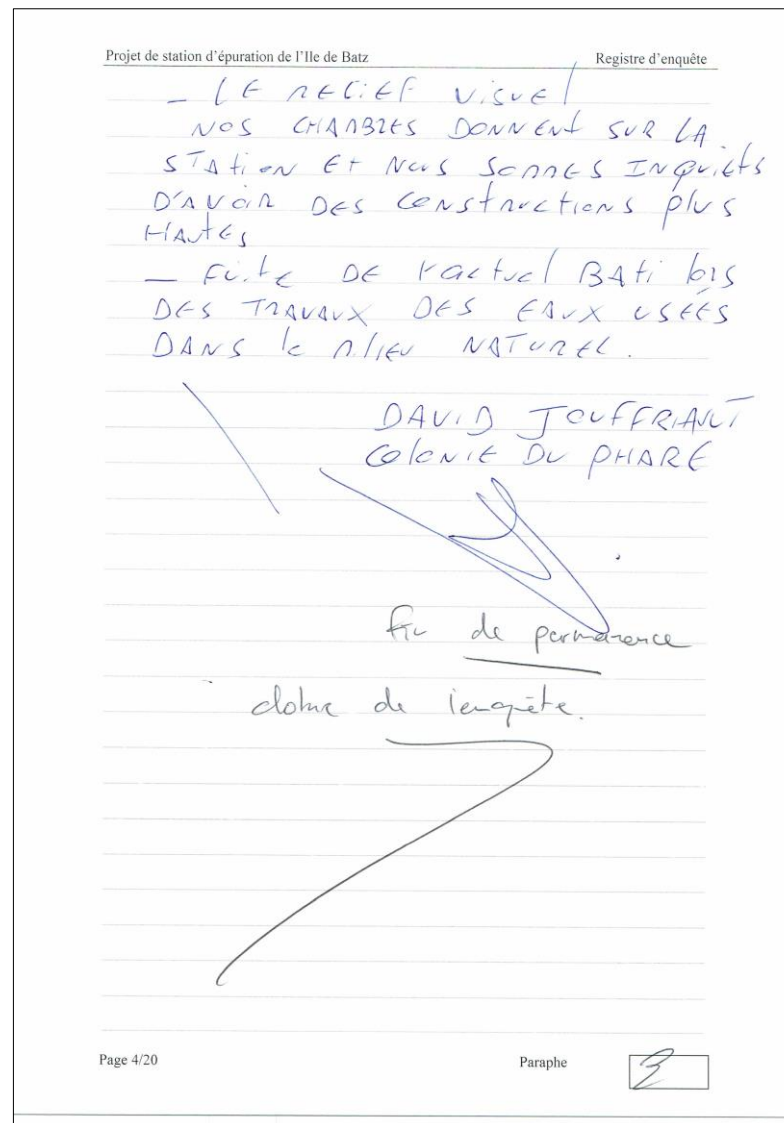 Projet de station d'épuration de l'Ile de Batz Registre d'enquête
– LE RELIEF VISUEL
NOS CHAMBRES DONNENT SUR LA
STATION ET NOUS SOMMES INQUIETS
D'AVOIR DES CONSTRUCTIONS PLUS
HAUTES
– FUITE DE l'ACTUEL BATI lORS
DES TRAVAUX DES EAUX USÉES
DANS le MILIEU NATUREL.
DAVID JOUFFRIAULT
COLONIE DU PHARE
fin de permanence
cloture de l'enquête.
Page 4/20 Paraphe